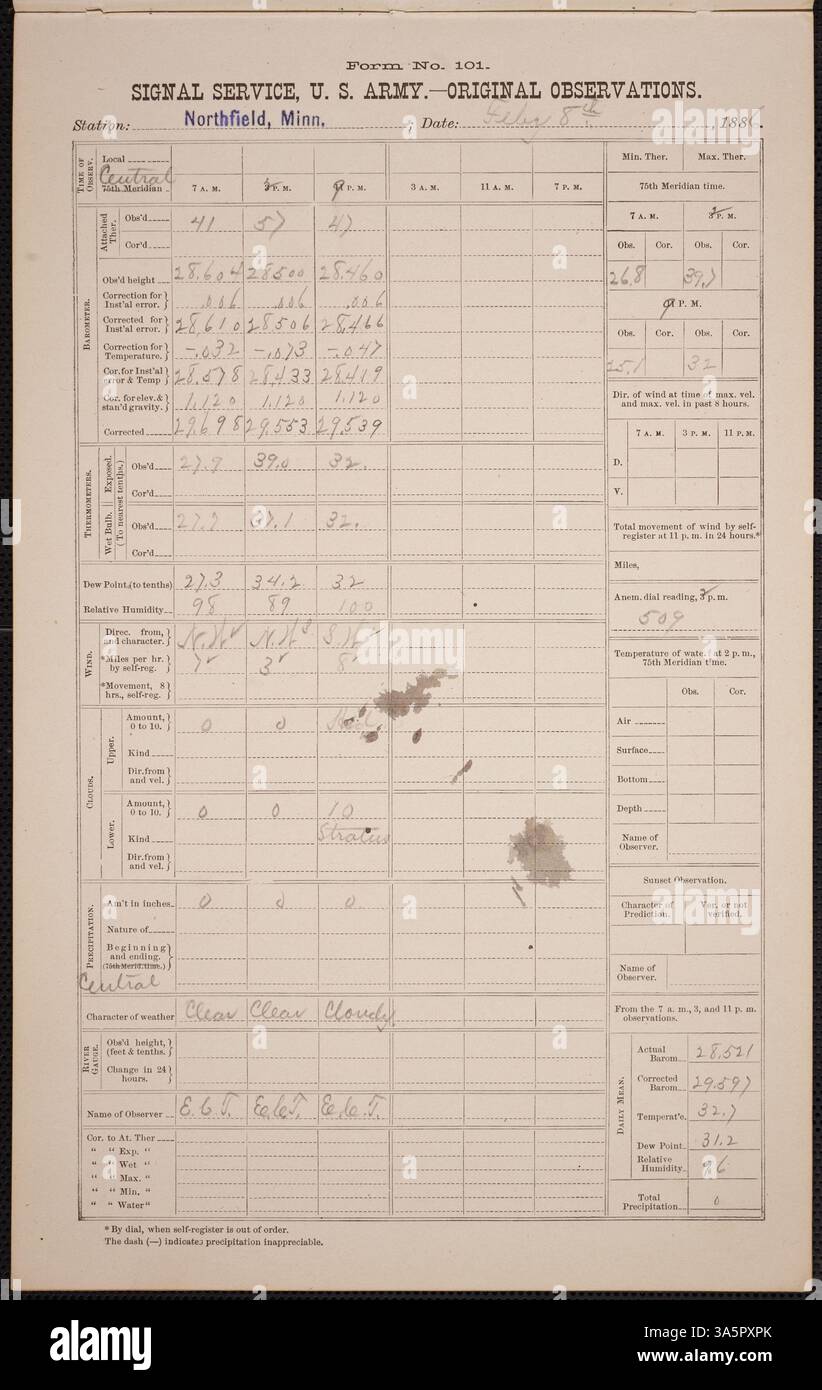 Form No. 101.
SIGNAL SERVICE, U. S. ARMY.—ORIGINAL OBSERVATIONS.
Station: Northfield, Minn. ; Date: Feby 8th , 188
TIME OF OBSERV.
Local
Central
75th Meridian 7 A. M. 3 P. M. 9 P. M. 3 A. M. 11 A. M. 7 P. M.
BAROMETER.
Attached Ther.
Obs'd 41 57 47
Cor'd
Obs'd height 28.604 28.500 28.460
Correction for Inst'al error. .006 .006 .006
Corrected for Inst'al error. 28.610 28.506 28.466
Correction for Temperature. -.032 -.073 -.047
Cor. for Inst'al error & Temp 28.578 28.433 28.419
Cor. for elev. & stan'd gravity. 1.120 1.120 1.120
Corrected 29.698 29.553 29.539
THERMOMETERS.
(To nearest tenths.)
Exposed.
Obs'd 27.9 39.0 32.
Cor'd
Wet Bulb.
Obs'd 27.7 37.1 32.
Cor'd
Dew Point (to tenths) 27.3 34.2 32
Relative Humidity 98 89 100
WIND.
Direc. from, and character. N.W N.W S.W
*Miles per hr. by self-reg. 7 3 8
*Movement, 8 hrs., self-reg.
CLOUDS.
Upper.
Amount, 0 to 10. 0 0
Kind
Dir. from and vel.
Lower.
Amount, 0 to 10. 0 0 10
Kind Stratus
Dir. from and vel.
PRECIPITATION.
Am't in inches 0 0 0
Nature of
Beginning and ending.
(75th Merid. time.)
Central
Character of weather Clear Clear Cloudy
RIVER GAUGE.
Obs'd height, (feet & tenths.
Change in 24 hours.
Name of Observer E.C.T. E.C.T. E.C.T.
Cor. to At. Ther
" " Exp. "
" " Wet "
" " Max. "
" " Min. "
" " Water"
* By dial, when self-register is out of order.
The dash (—) indicates precipitation inappreciable.
Min. Ther. Max. Ther.
75th Meridian time.
7 A. M. 2 P. M.
Obs. Cor. Obs. Cor.
26.8 39.7
9 P. M.
Obs. Cor. Obs. Cor.
25.1 32
Dir. of wind at time of max. vel. and max. vel. in past 8 hours.
7 A. M. 3 P. M. 11 P. M.
D.
V.
Total movement of wind by self-register at 11 p. m. in 24 hours.*
Miles,
Anem. dial reading, 3 p. m.
509
Temperature of water at 2 p. m., 75th Meridian time.
Obs. Cor.
Air
Surface
Bottom
Depth
Name of Observer.
Sunset Observation.
Character of Prediction. Ver. or not verified.
Name of Observer.
From the 7 a. m., 3, and 11 p. m. observations.
DAILY MEAN.
Actual Barom. 28.521
Corrected Barom. 29.597
Temperat'e. 32.7
Dew Point 31.2
Relative Humidity 96
Total Precipitation 0
alamy
Image ID: 3A5PXPK
www.alamy.com